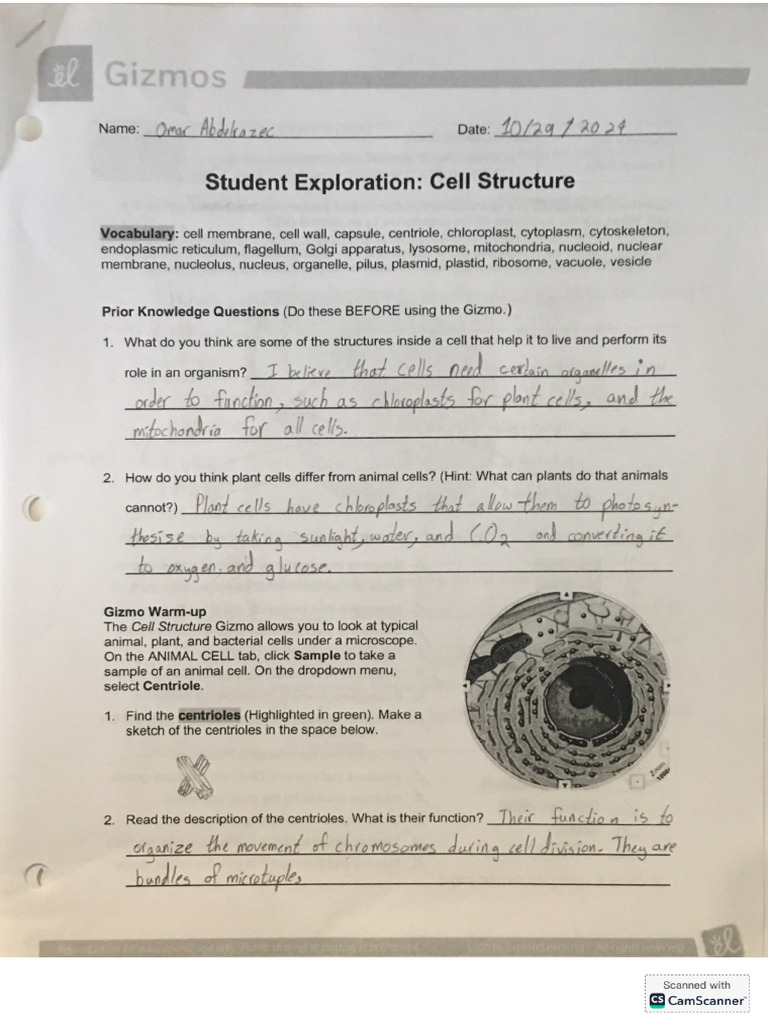 el Gizmos
Name: Omar Abdelrazec Date: 10/29/2024
Student Exploration: Cell Structure
Vocabulary: cell membrane, cell wall, capsule, centriole, chloroplast, cytoplasm, cytoskeleton,
endoplasmic reticulum, flagellum, Golgi apparatus, lysosome, mitochondria, nucleoid, nuclear
membrane, nucleolus, nucleus, organelle, pilus, plasmid, plastid, ribosome, vacuole, vesicle
Prior Knowledge Questions (Do these BEFORE using the Gizmo.)
1. What do you think are some of the structures inside a cell that help it to live and perform its
role in an organism? I believe that cells need certain organelles in
order to function, such as chloroplasts for plant cells, and the
mitochondria for all cells.
2. How do you think plant cells differ from animal cells? (Hint: What can plants do that animals
cannot?) Plant cells have chloroplasts that allow them to photosyn-
thesise by taking sunlight, water, and CO2 and converting it
to oxygen and glucose.
Gizmo Warm-up
The Cell Structure Gizmo allows you to look at typical
animal, plant, and bacterial cells under a microscope.
On the ANIMAL CELL tab, click Sample to take a
sample of an animal cell. On the dropdown menu,
select Centriole.
Zoom
1. Find the centrioles (Highlighted in green). Make a
sketch of the centrioles in the space below.
2. Read the description of the centrioles. What is their function? Their function is to
organize the movement of chromosomes during cell division. They are
bundles of microtuples
el
Scanned with
CS CamScanner